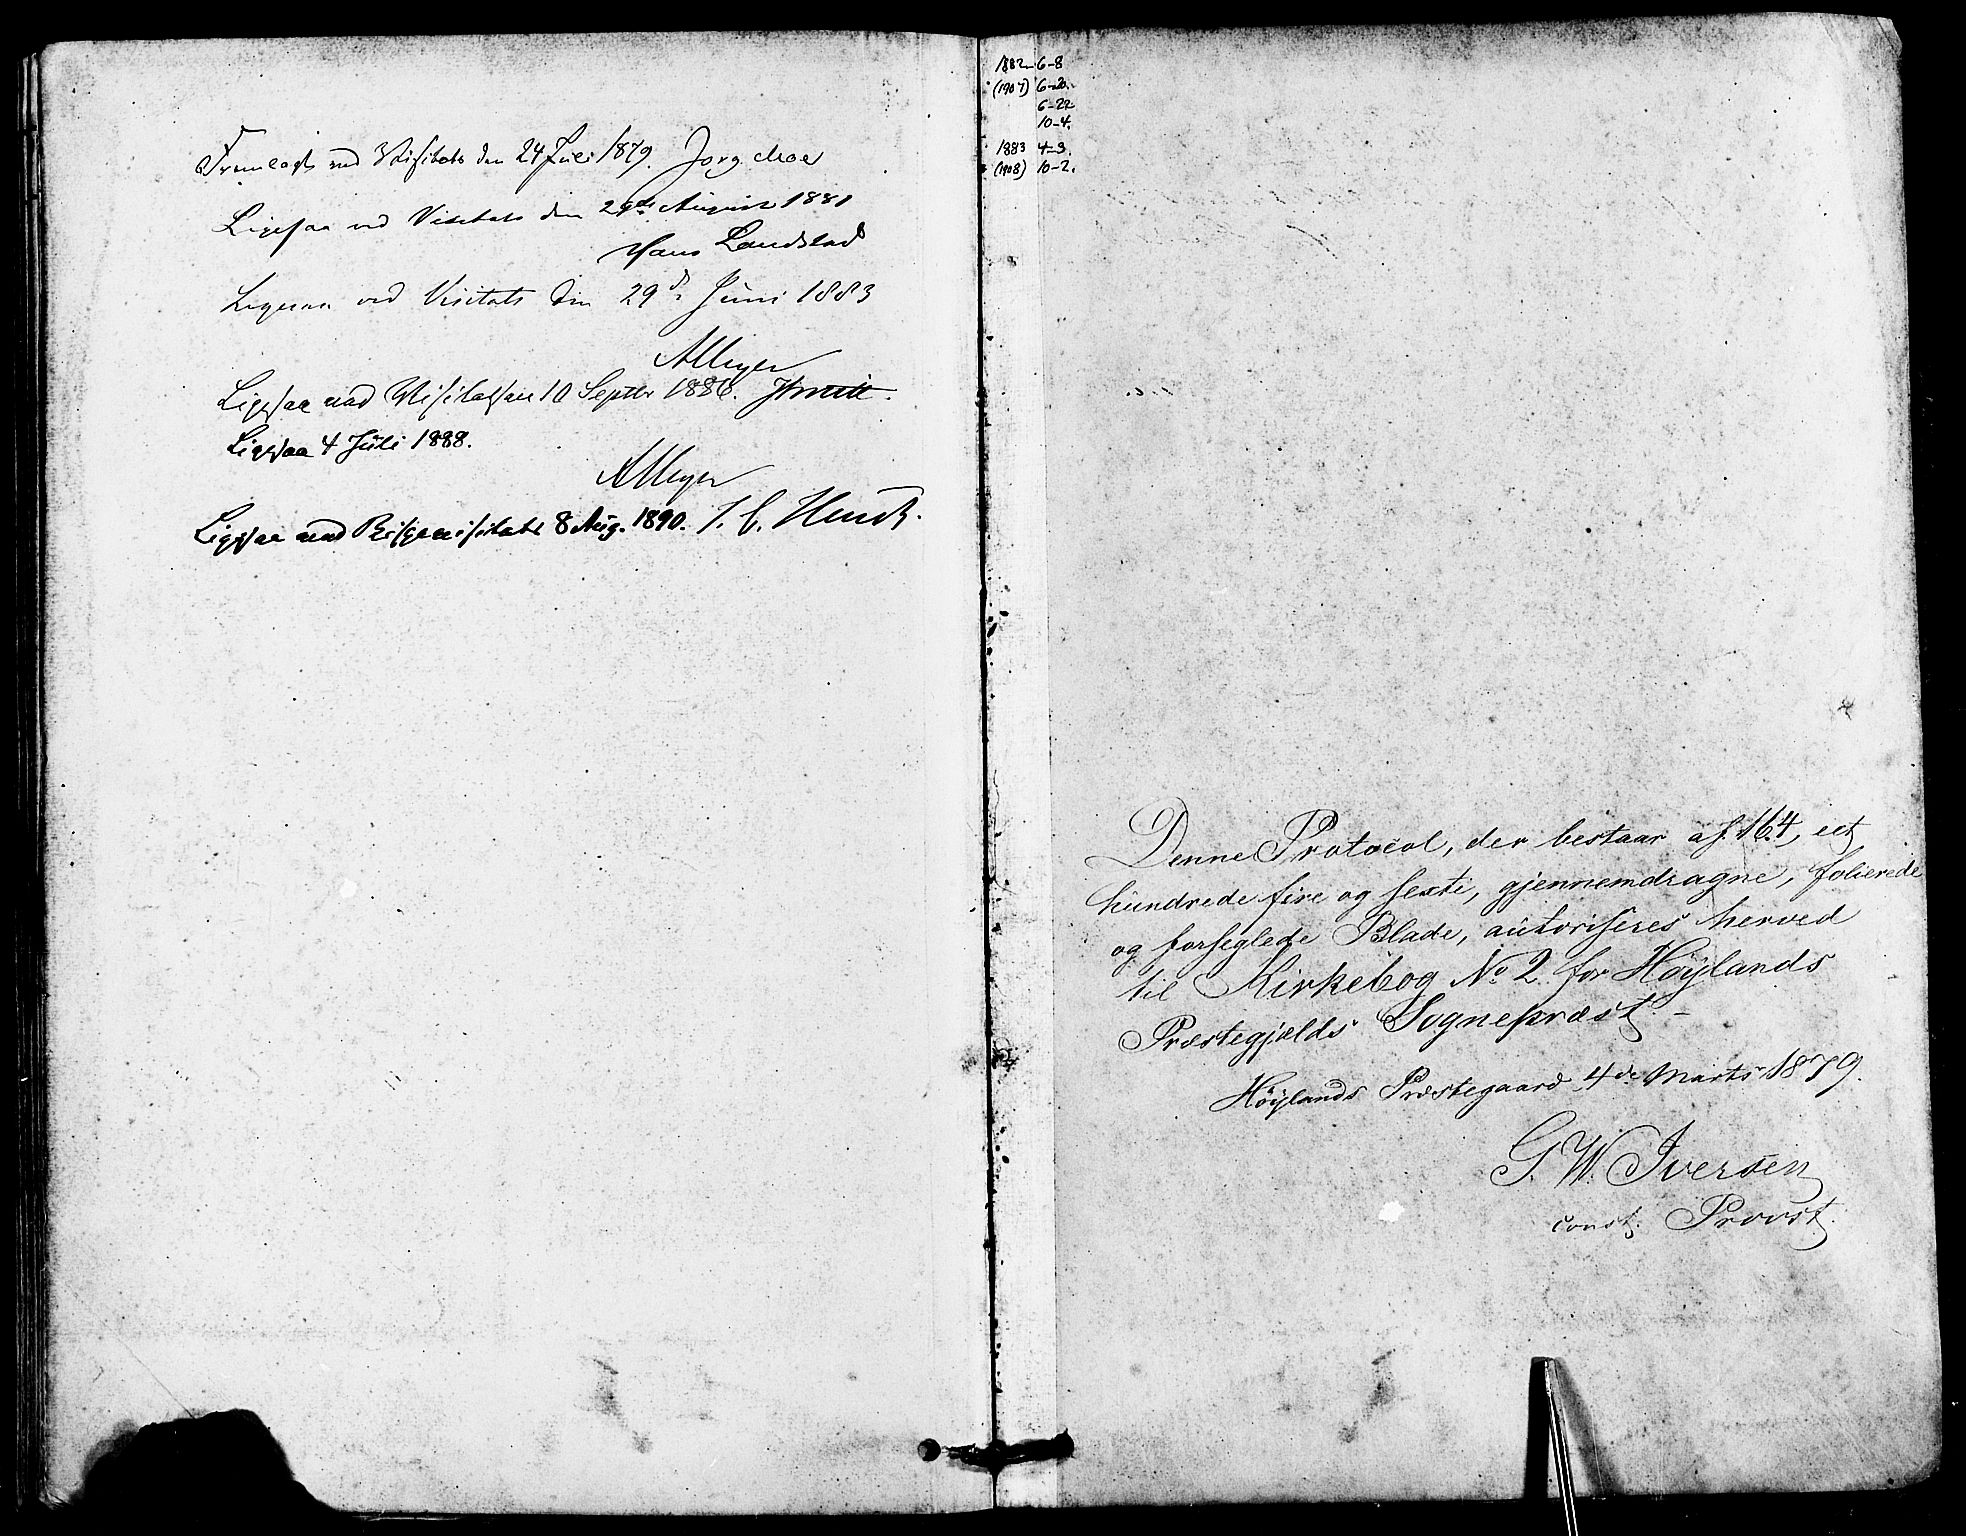 Fremlagt ved Visitats den 24 Juli 1879. Jørg. Moe
Ligesaa ved Visitats den 29de August 1881
Hans Landstad
Ligesaa ved Visitats den 29d. Juni 1883
AMeyer
Ligesaa ved Visitatsen 10 Septbr 1886.
Ligesaa 4 Juli 1888.
AMeyer
Ligesaa ved Bispevisitats 8 Aug. 1890. J. C. Heuch.
1882 6-8
(1907) 6-20.
6-22
10-4.
1883 4-3.
(1908) 10-2.
Denne Protocol, der bestaar af 164, eet
hundrede fire og sexti, gjennemdragne, folierede
og forseglede Blade, autoriseres herved
til Kirkebog No 2 for Höylands
Præstegjælds Sognepræst -
Höylands Præstegaard 4de Marts 1879.
G. W. Iversen
const. Provst.